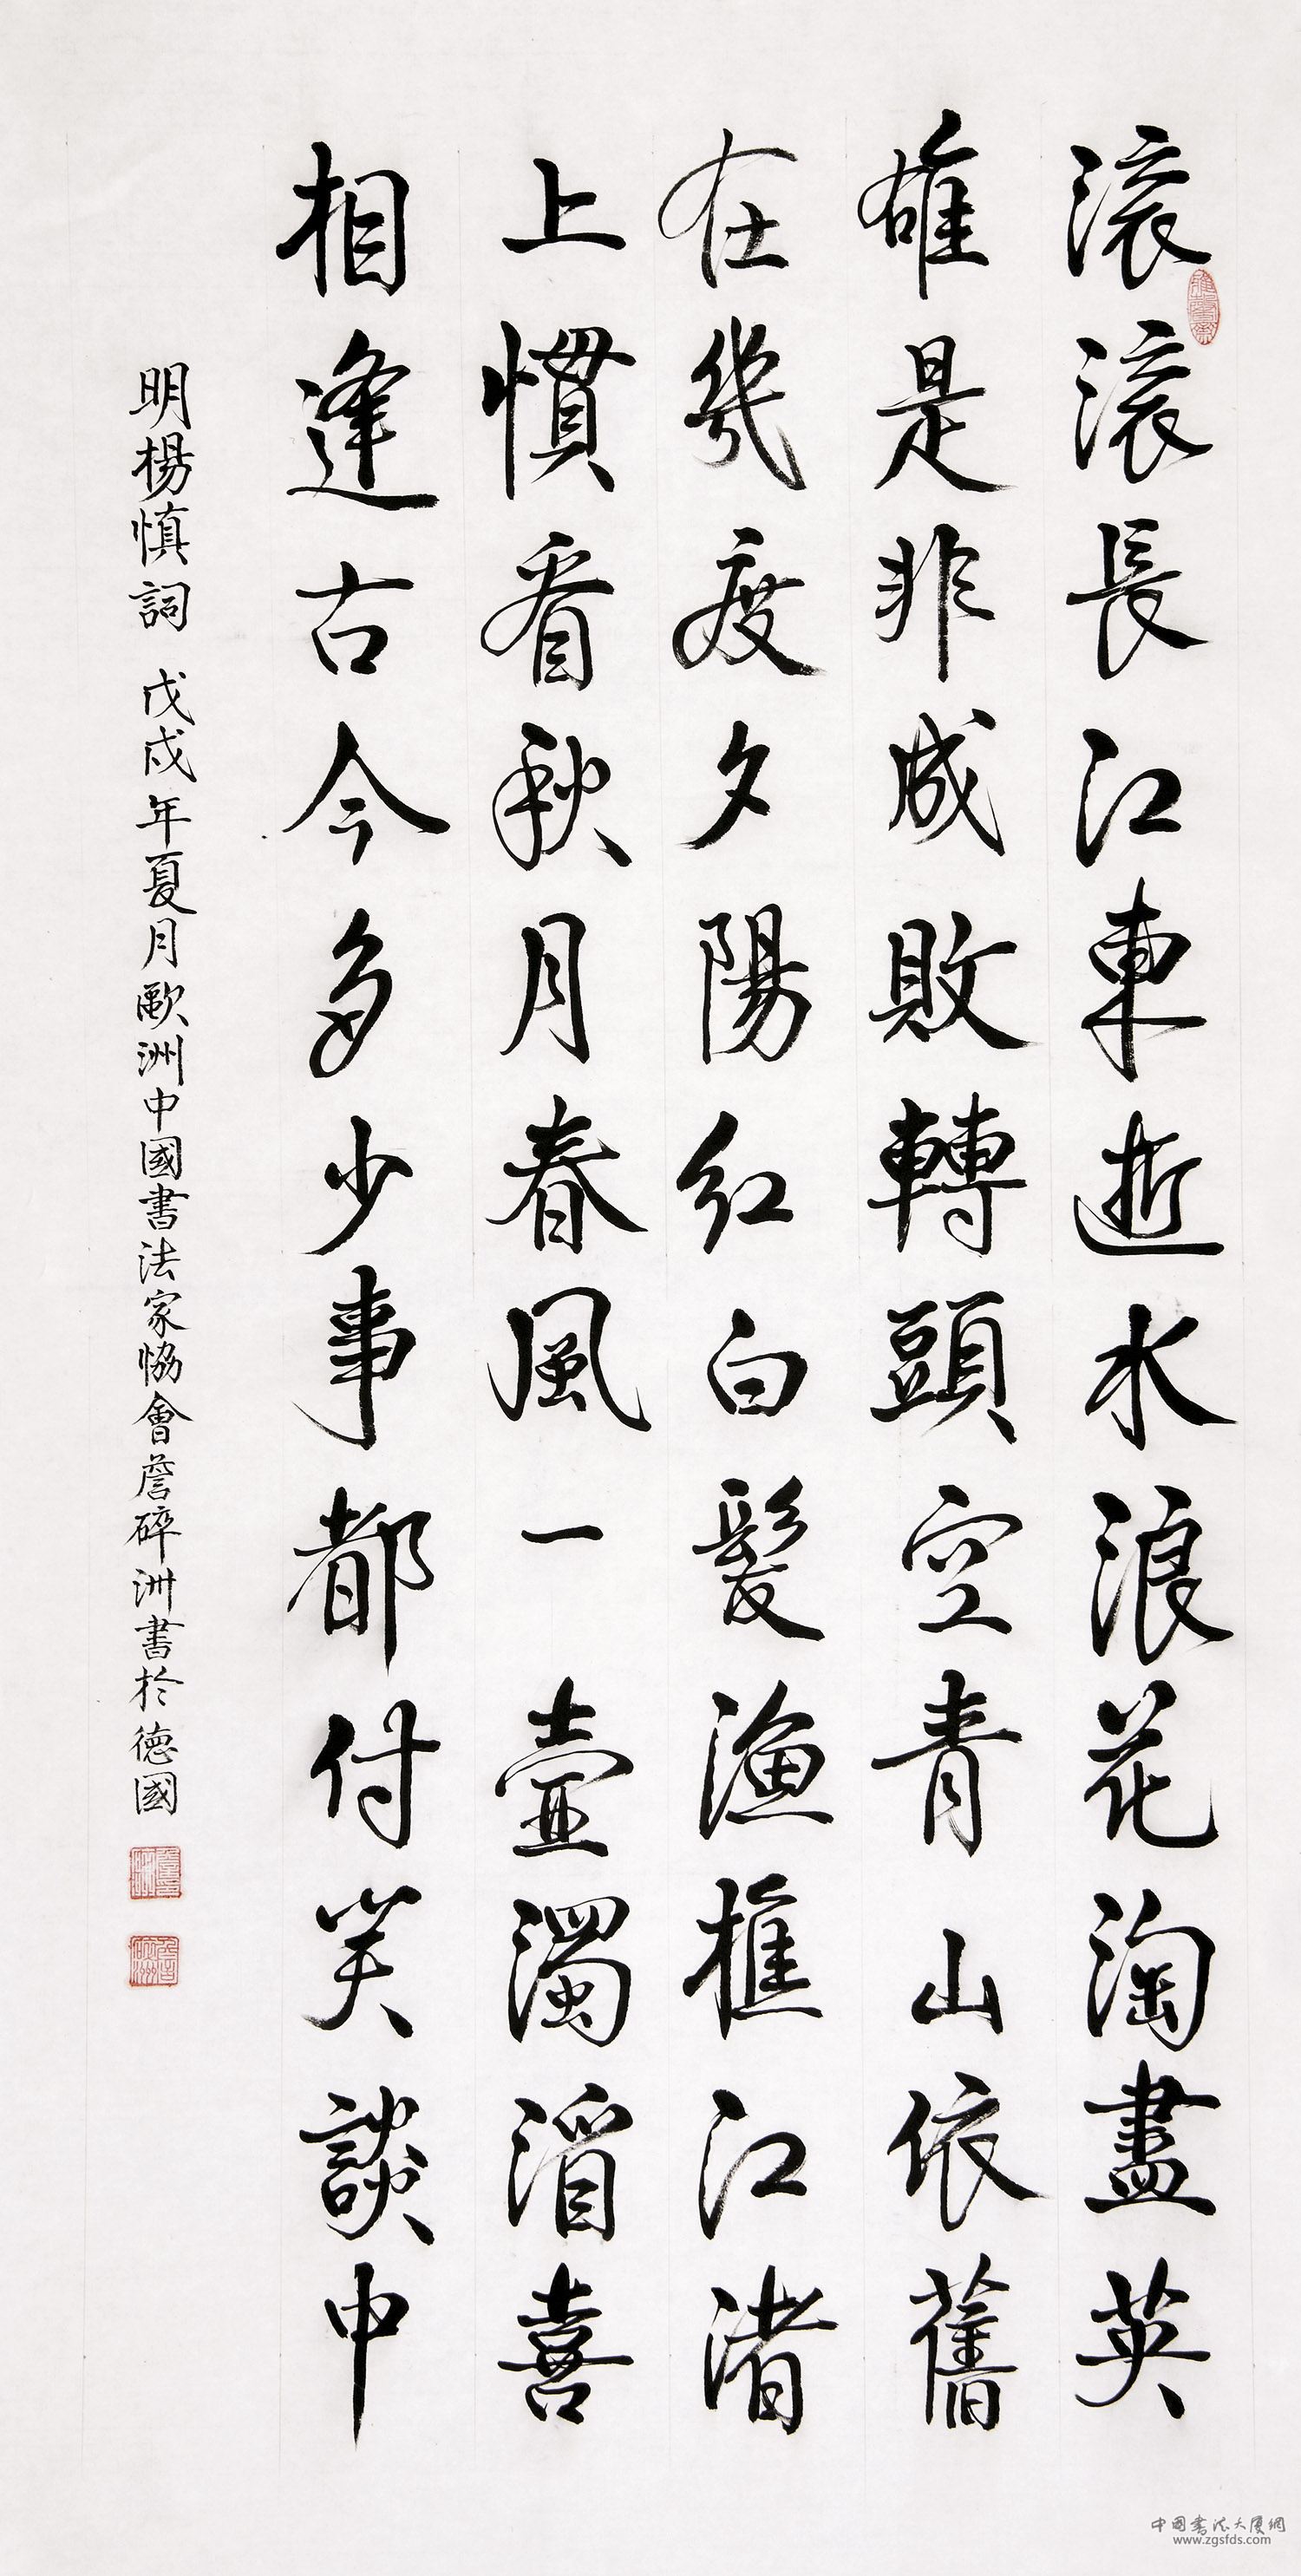 滚滚長江東逝水浪花淘盡英
雄是非成敗轉頭空青山依舊
在幾度夕陽紅白髮漁樵江渚
上慣看秋月春風一壺濁酒喜
相逢古今多少事都付笑談中
明楊慎詞 戊戌年夏月歐洲中國書法家協會詹碎洲書於德國
中国书法大厦網
www.zgsfds.com